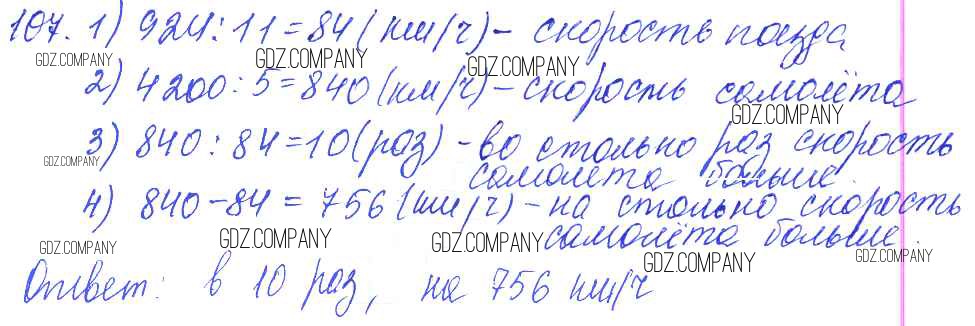 107. 1) 924:11=84(км/ч) - скорость поезда
GDZ.COMPANY GDZ.COMPANY GDZ.COMPANY
2) 4200:5=840(км/ч) - скорость самолёта
GDZ.COMPANY
3) 840:84=10(раз) - во столько раз скорость
GDZ.COMPANY
самолета больше.
4) 840-84=756(км/ч) - на столько скорость
GDZ.COMPANY GDZ.COMPANY GDZ.COMPANY самолёта больше.
GDZ.COMPANY GDZ.COMPANY
Ответ: в 10 раз, на 756 км/ч